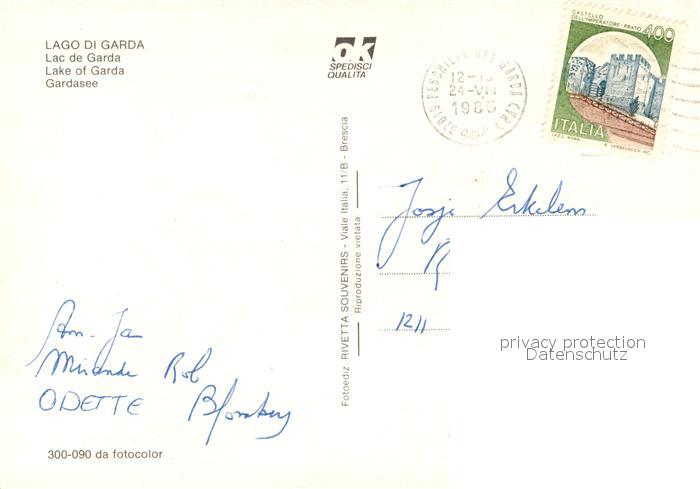 LAGO DI GARDA
Lac de Garda
Lake of Garda
Gardasee
ok
SPEDISCI
QUALITÀ
37019 PESCHIERA DEL GARDA (VR)
24-VII
1985
CASTELLO
DELL'IMPERATORE-PRATO
400
ITALIA
I.P.Z.S. ROMA
Fotoediz. RIVETTA SOUVENIRS - Viale Italia, 11/B - Brescia
Riproduzione vietata
Josje Erkelens
R
1211
privacy protection
Datenschutz
Ja
Mirande Rob
ODETTE
300-090 da fotocolor